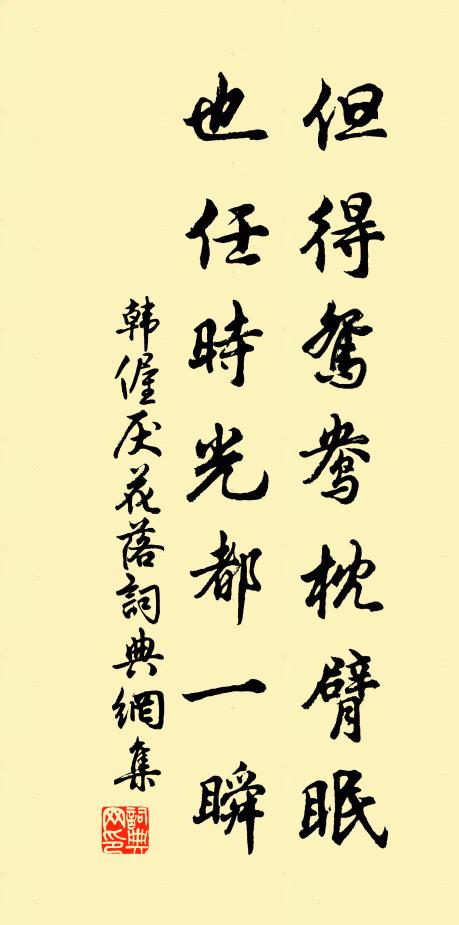 但得鴛鴦枕臂眠
也任時光都一瞬
韩偓厌花落詞典網集
詞典網印